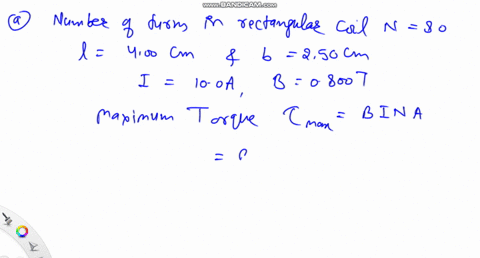 WWW.BANDICAM.COM
(a) Number of turns in rectangular coil N = 80
l = 4.00 cm & b = 2.50 cm
I = 10.0A, B = 0.800T
Maximum Torque τmax = BINA
=